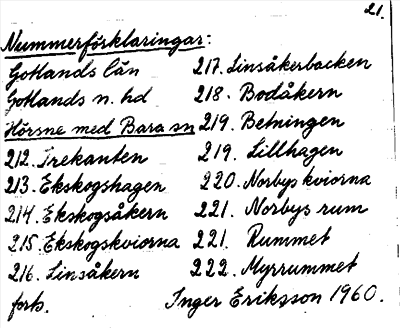 21.
Nummerförklaringar:
Gotlands län
Gotlands n. hd
Hörsne med Bara sn
212. Trekanten
213. Ekskogshagen
214. Ekskogsåkern
215. Ekskogskviorna
216. Linsåkern
forts.
217. Linsåkerbacken
218. Bodåkern
219. Betningen
219. Lillhagen
220. Norbyskviorna
221. Norbys rum
221. Rummet
222. Myrrummet
Inger Eriksson 1960.